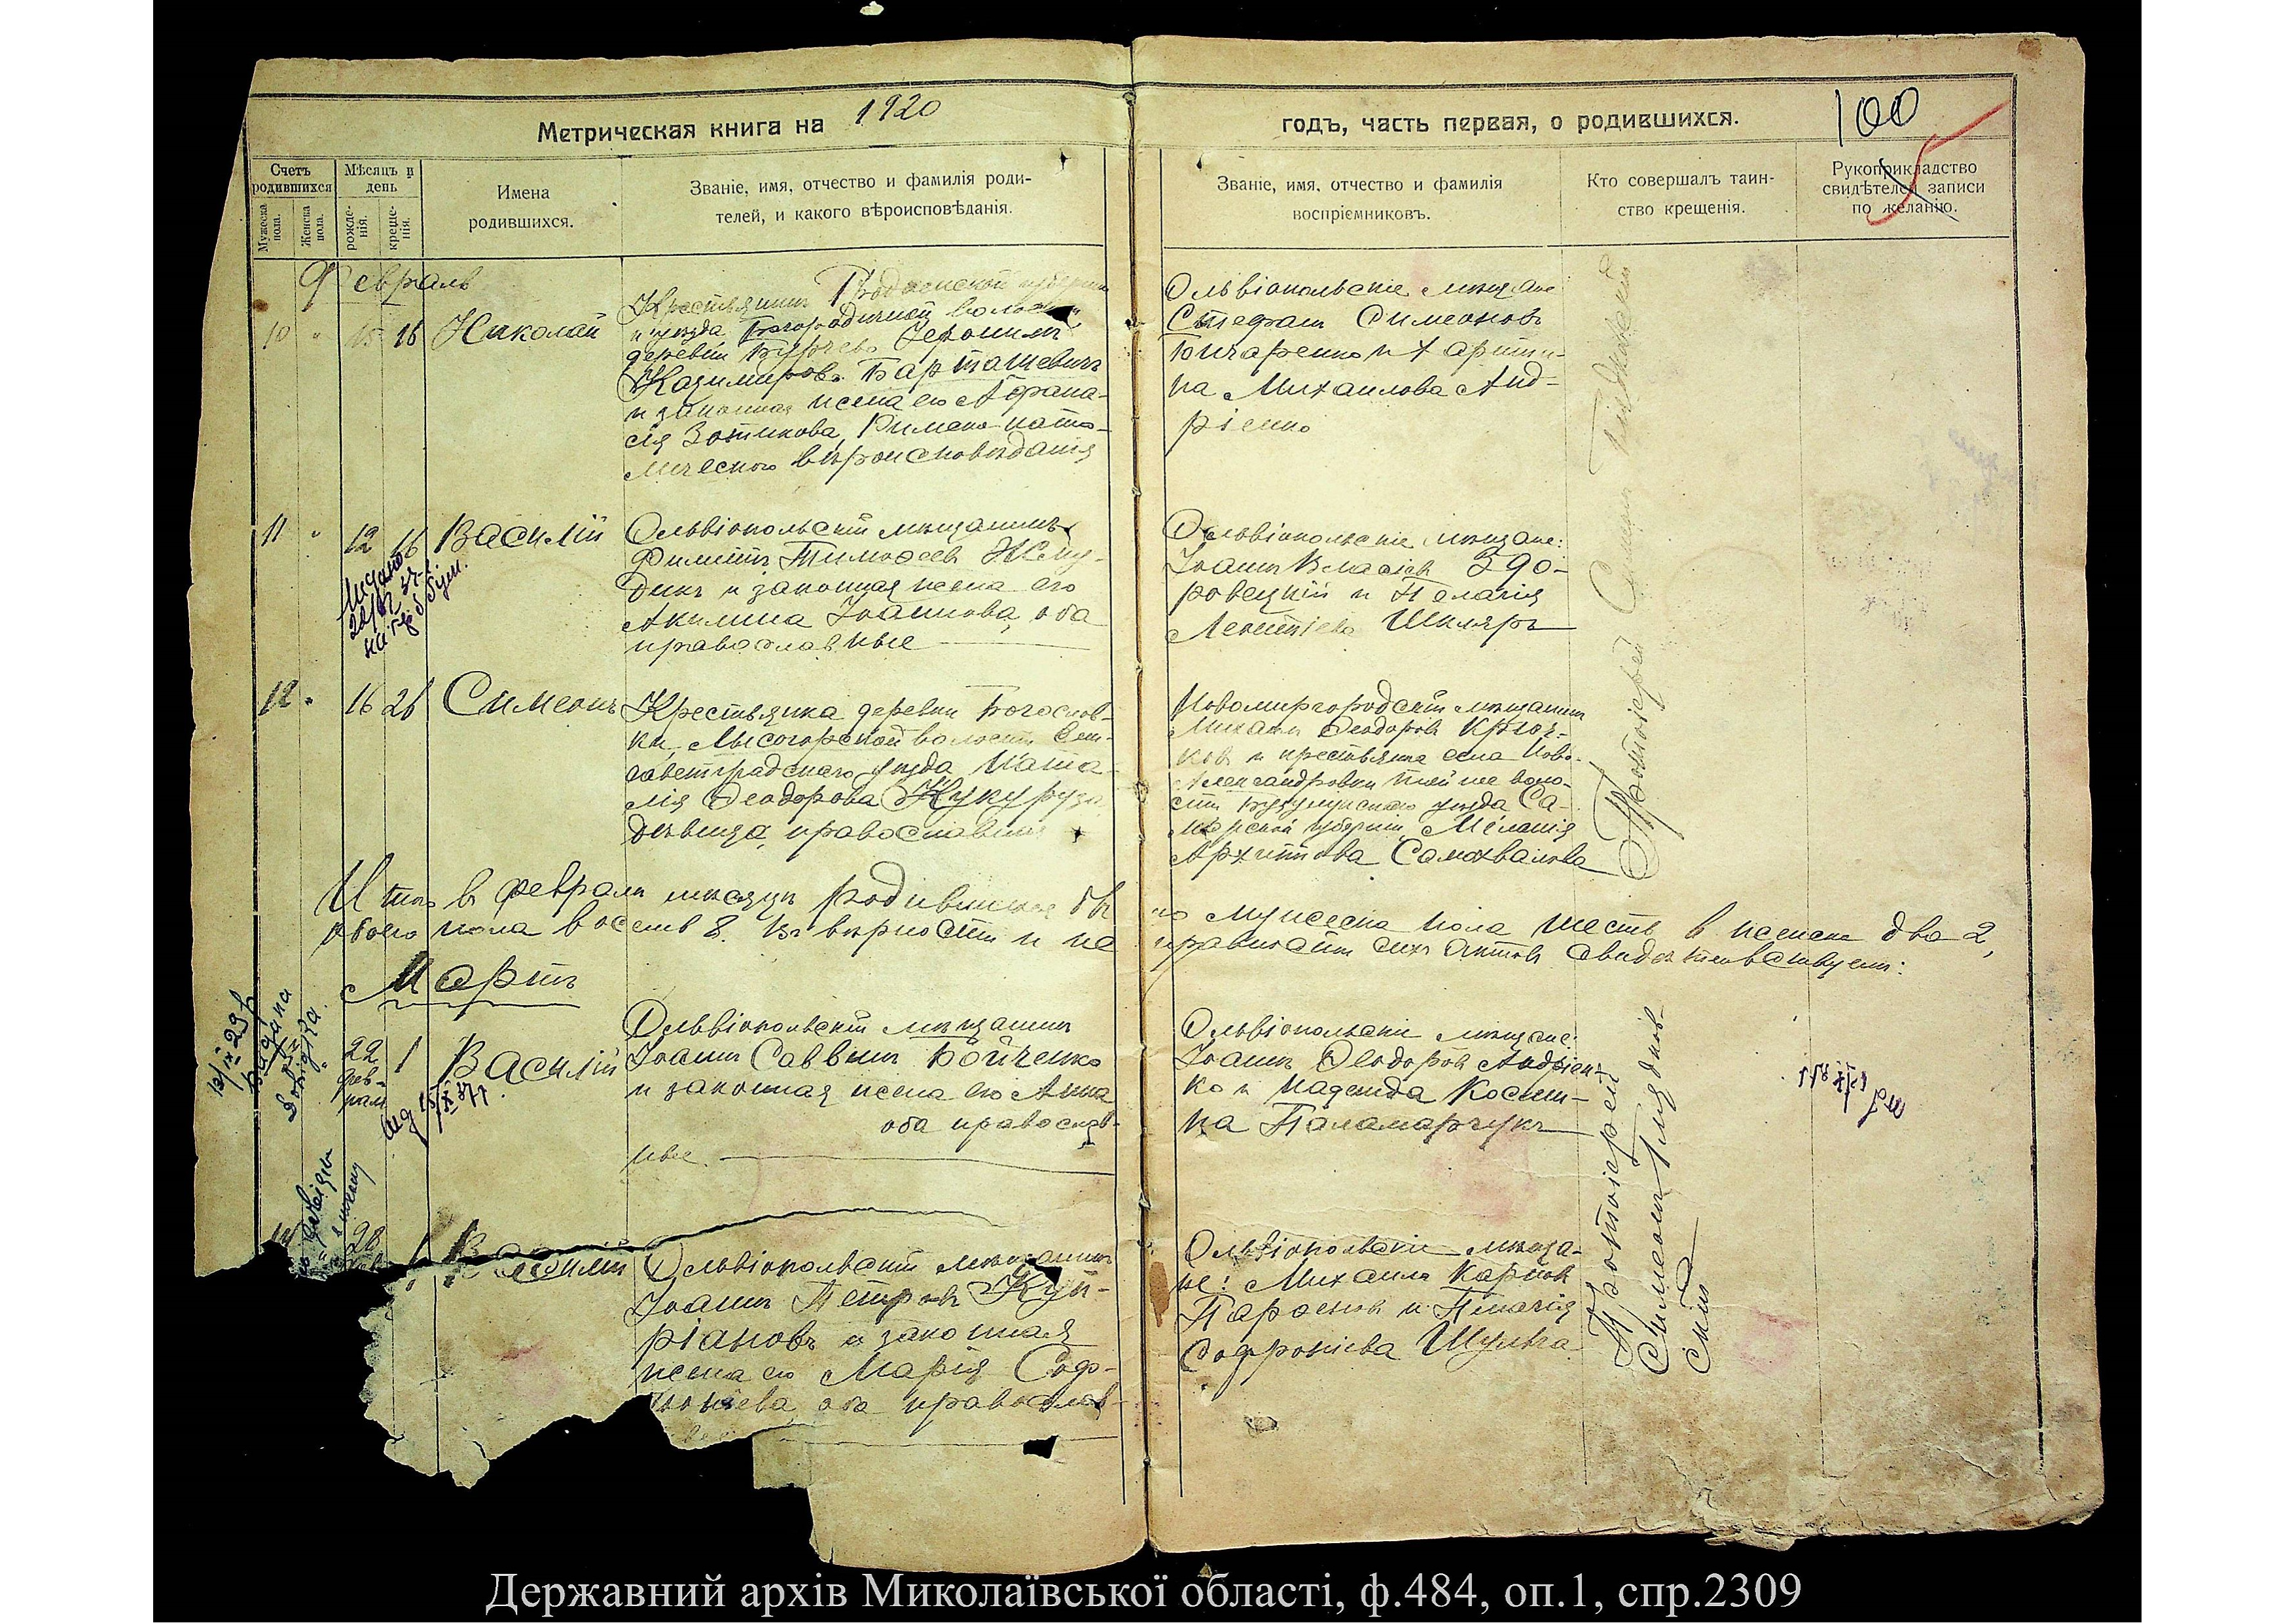 Метрическая книга на 1920 годъ, часть первая, о родившихся.
100
Счетъ родившихся
Мужеска пола.
Женска пола.
Мѣсяцъ и день
рожде-
нія.
креще-
нія.
Имена
родившихся.
Званіе, имя, отчество и фамилія роди-
телей, и какого вѣроисповѣданія.
Званіе, имя, отчество и фамилія
воспріемниковъ.
Кто совершалъ таин-
ство крещенія.
Рукоприкладство
свидѣтелей записи
по желанію.
Февраль
10 " 15 16 Николай
Крестьянинъ Гродненской губерніи
и уѣзда волости
деревни Іеронимъ
Казимировъ Барташевичъ
и законная жена его Афана-
сія Зотикова, Римско-като-
лическаго вѣроисповѣданія
Ольвіопольскіе мѣщане
Стефанъ Симеоновъ
Бичаренко и Харити-
на Михаилова Анд-
ріенко
11 " 12 16 Василій
Ольвіопольскій мѣщанинъ
Филиппъ Тимофеевъ
и законная жена его
Акилина Іоаннова, оба
православные
Ольвіопольскіе мѣщане:
Іоаннъ Власіевъ Здо-
ровецкій и Пелагія
Леонтіева Шкляръ
12 " 16 26 Симеонъ
Крестьянка деревни Богослов-
ки, Лысогорской волости Ели-
саветградскаго уѣзда Ната-
лія Феодорова Кукуруза
дѣвица, православная
Новомиргородскій мѣщанинъ
Михаилъ Феодоровъ Крюч-
ковъ и крестьянка села Ново-
Александровки той же воло-
сти Бузулукскаго уѣзда Са-
марской губерніи, Меланія
Архиппова Самохвалова
Протоіерей Симеонъ
Итого въ февралѣ мѣсяцѣ родившихся бы
ло мужеска пола шесть и женска два 2,
обоего пола восемь 8. Въ вѣрности и не
правильности сихъ актовъ свидѣтельствуемъ:
Мартъ
22
фев-
раля
1 Василій
Ольвіопольскій мѣщанинъ
Іоаннъ Саввинъ Бойченко
и законная жена его Анна
оба православ-
ные
Ольвіопольскіе мѣщане:
Іоаннъ Феодоровъ Андріен-
ко и Надежда Косми-
на Паламарчукъ
28
Василій
Ольвіопольскій мѣщанинъ
Іоаннъ Петровъ Куп-
ріановъ и законная
жена его Марія Соф-
роніева, оба православ-
Ольвіопольскіе мѣща-
не: Михаилъ Карповъ
и Пелагія
Софроніева Шульга
Протоіерей
Симеонъ
Державний архів Миколаївської області, ф.484, оп.1, спр.2309